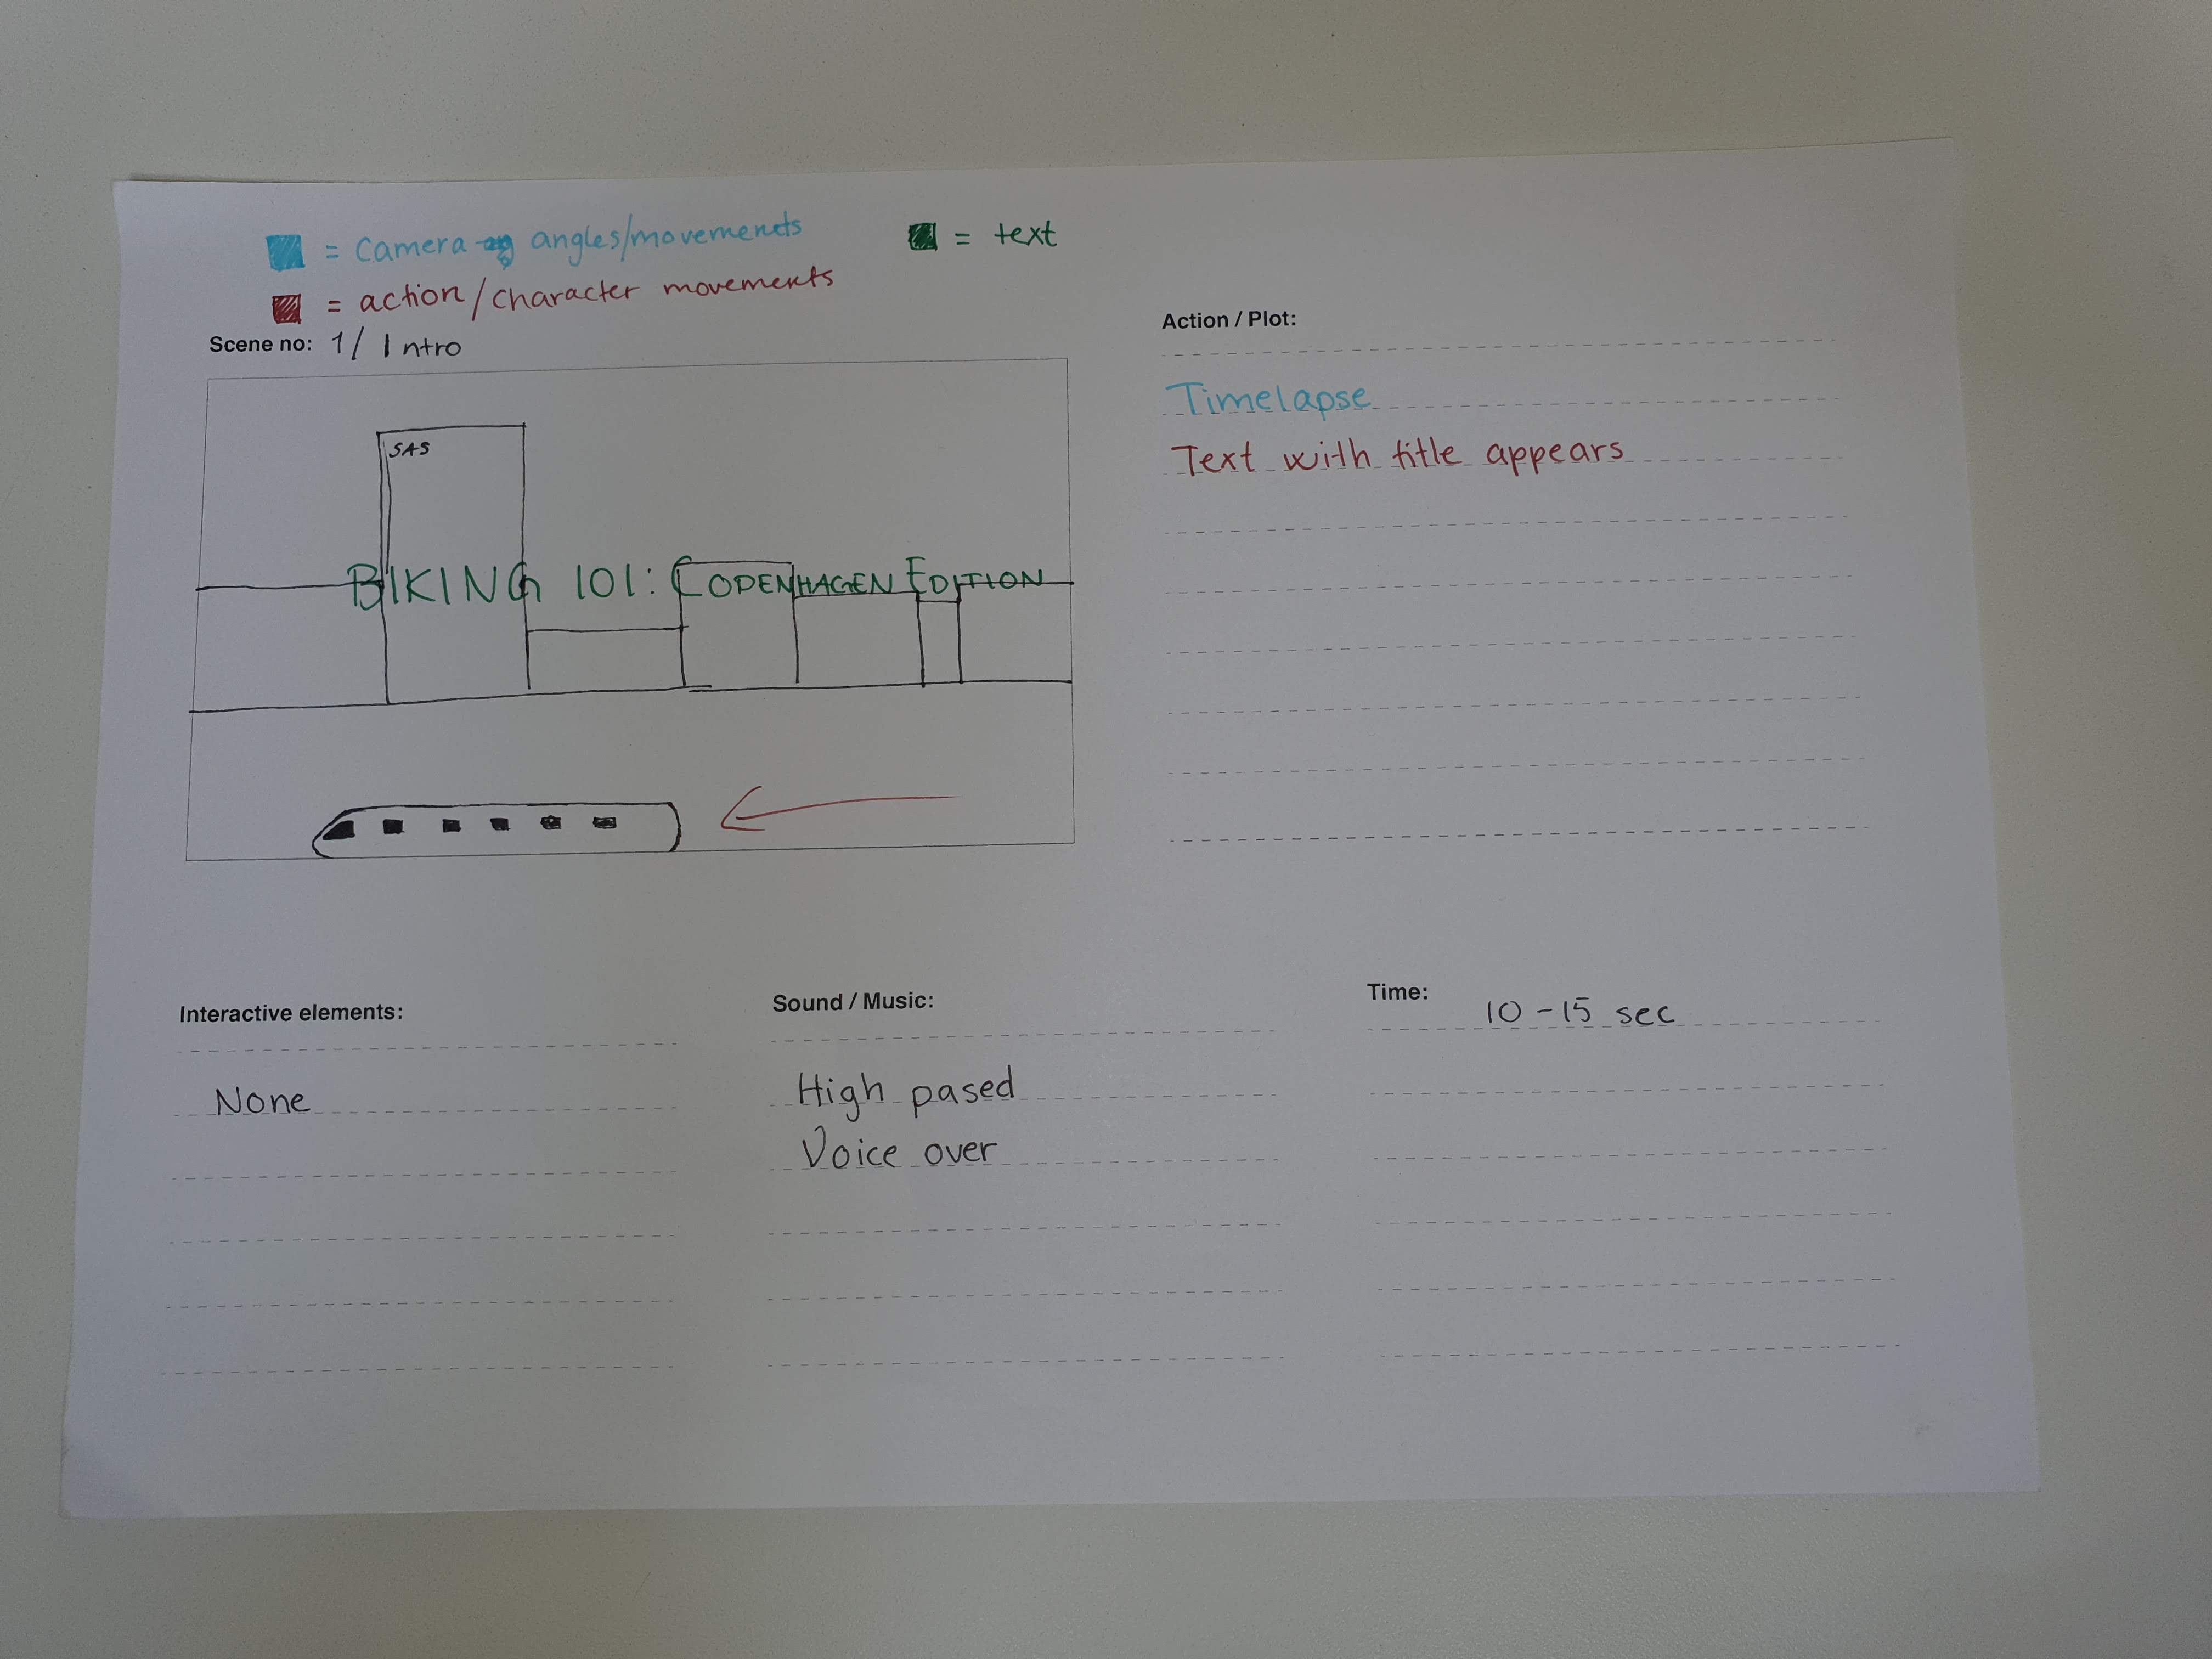 = Camera angles/movements
= text
= action/character movements
Scene no: 1/ Intro
SAS
BIKING 101: COPENHAGEN EDITION
Action / Plot:
Timelapse
Text with title appears
Interactive elements:
None
Sound / Music:
High pased
Voice over
Time:
10-15 sec